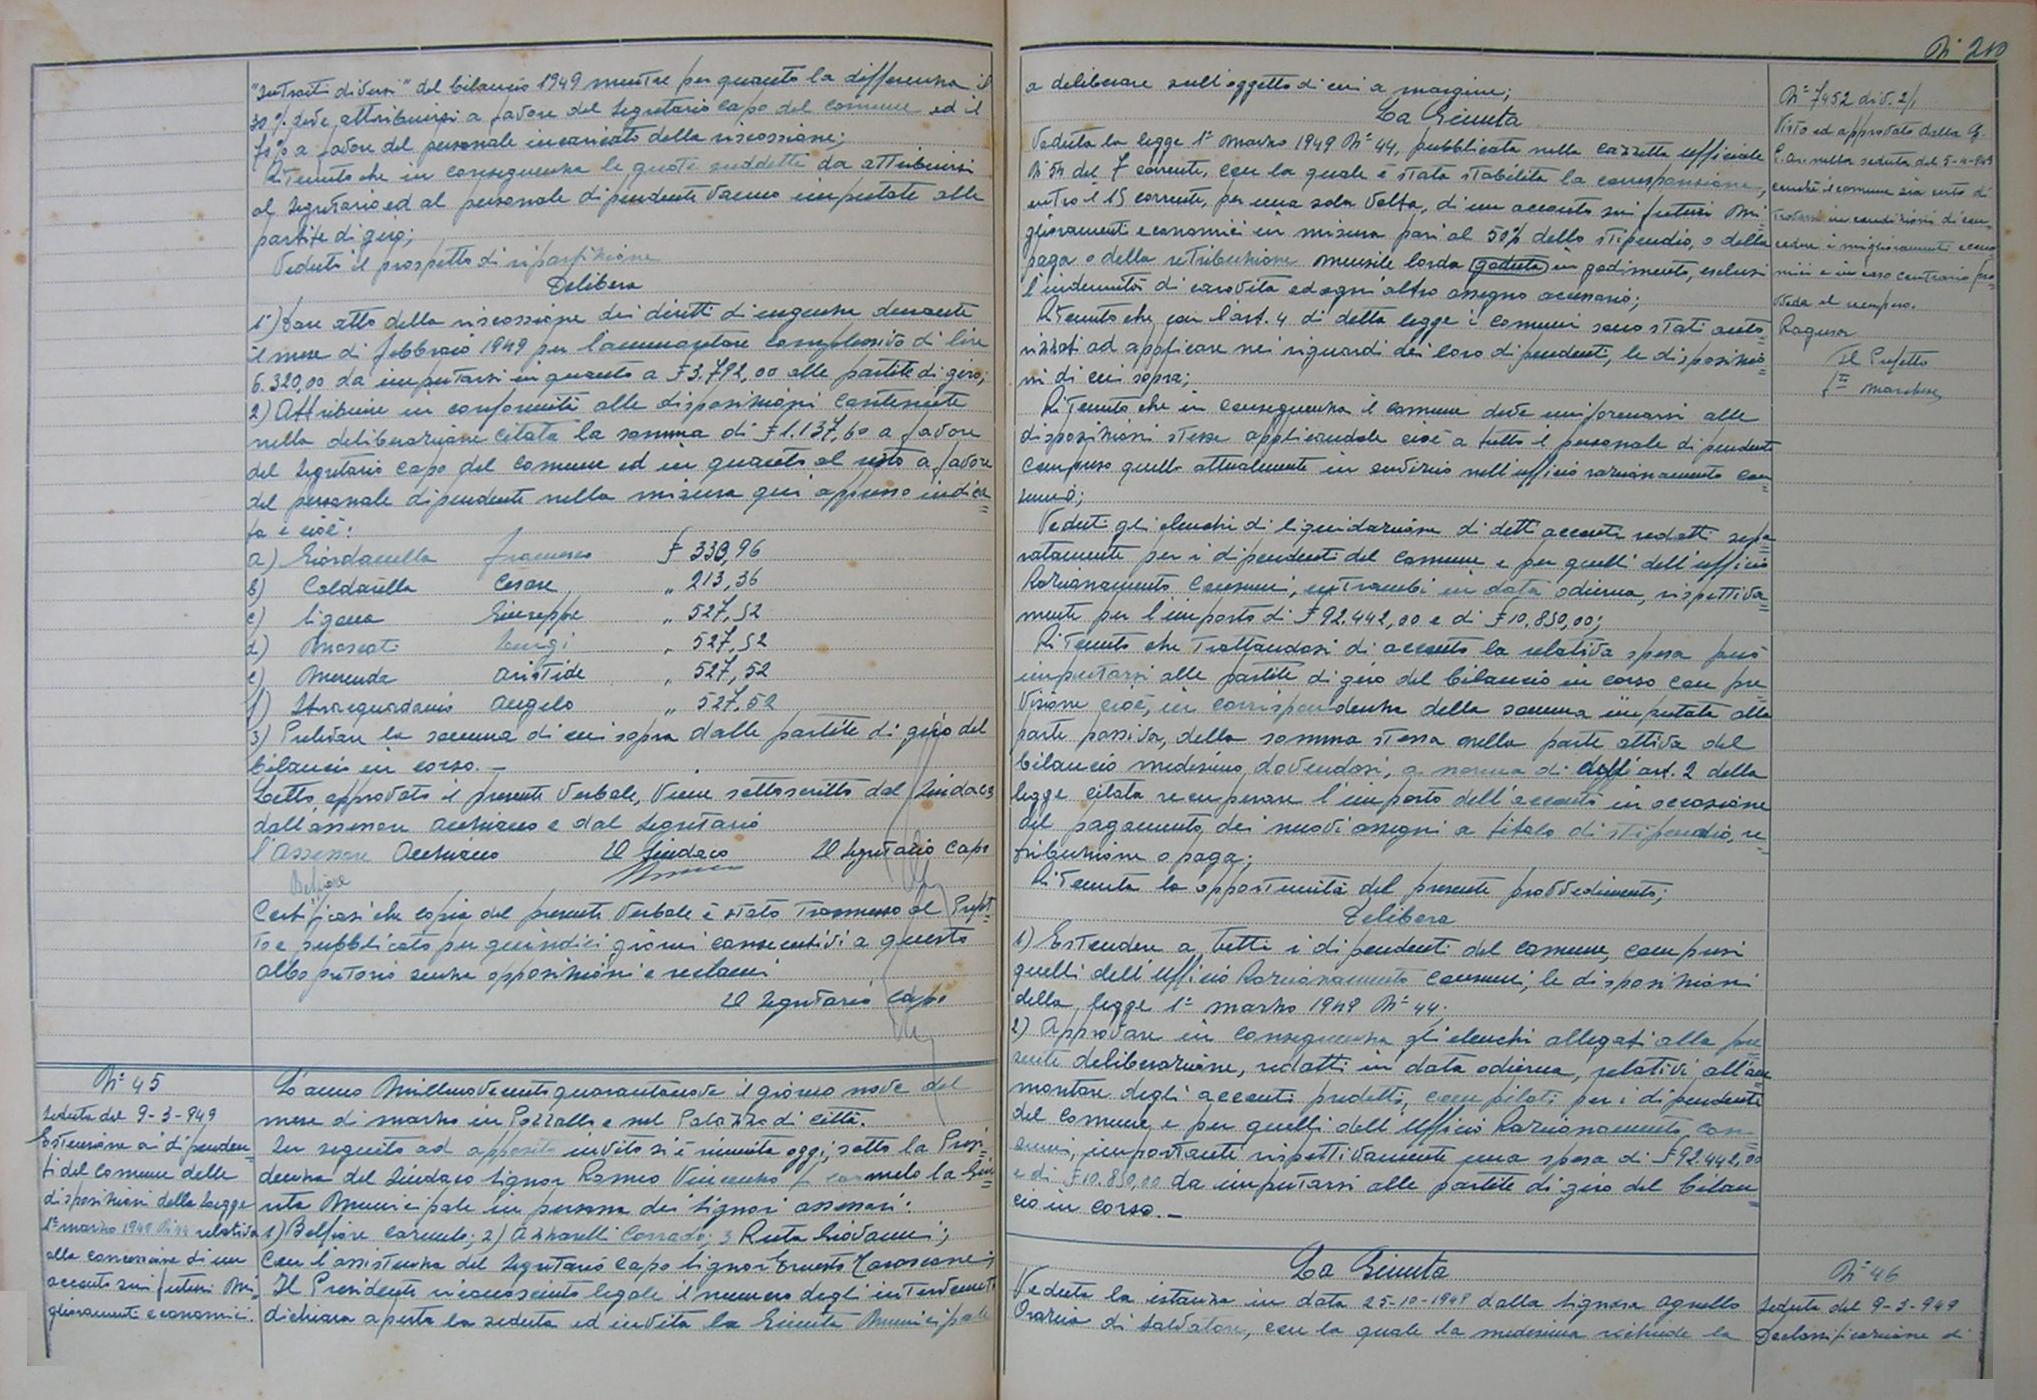 "Introiti diversi" del bilancio 1949 mentre per quanto la differenza il
30% deve attribuirsi a favore del Segretario capo del comune ed il
70% a favore del personale incaricato della riscossione;
Ritenuto che in conseguenza le quote suddette da attribuirsi
al Segretario ed al personale dipendente vanno imputate alle
partite di giro;
Veduto il prospetto di ripartizione
Delibera
1°) Dare atto della riscossione dei diritti di urgenza durante
il mese di febbraio 1949 per l'ammontare complessivo di lire
6.320,00 da imputarsi in quanto a £ 3.792,00 alle partite di giro;
2) Attribuire in conformità alle disposizioni contenute
nella deliberazione citata la somma di £ 1.137,60 a favore
del Segretario capo del comune ed in quanto al resto a favore
del personale dipendente nella misura qui appresso indica=
ta e cioè:
a) Giordanella Francesco £ 330,96
b) Caldarella Cesare " 213,36
c) Ligama Giuseppe " 527,52
d) Moscati Luigi " 527,52
e) Merenda Aristide " 527,52
f) Stracquadanio Angelo " 527,52
3) Prelevare la somma di cui sopra dalle partite di giro del
bilancio in corso. —
Letto, approvato il presente verbale, viene sottoscritto dal Sindaco
dall'assessore anziano e dal Segretario
L'Assessore Anziano Il Sindaco Il Segretario Capo
Belfiore
Certificasi che copia del presente verbale è stato trasmesso al Prefet=
to e pubblicato per quindici giorni consecutivi a questo
albo pretorio senza opposizioni e reclami
Il Segretario Capo
N° 45
Seduta del 9-3-949
Estensione ai dipenden=
ti del comune delle
disposizioni della Legge
1° marzo 1949 N. 44 relativa
alla concessione di un
acconto sui futuri mi=
glioramenti economici.
L'anno Millenovecentoquarantanove il giorno nove del
mese di marzo in Pozzallo e nel Palazzo di Città.
In seguito ad apposito invito si è riunita oggi, sotto la Presi=
denza del Sindaco Signor Romeo Vincenzo fu Carmelo la Giu=
nta Municipale in persona dei Signori assessori:
1) Belfiore Carmelo; 2) Azzarelli Corrado; 3 Ruta Giovanni;
Con l'assistenza del Segretario Capo Signor Ernesto
Il Presidente riconosciuto legale il numero degli intervenuti
dichiara aperta la seduta ed invita la Giunta Municipale
N° 210
a deliberare sull'oggetto di cui a margine;
La Giunta
Veduta la legge 1° marzo 1949 N° 44, pubblicata nella Gazzetta Ufficiale
N 54 del 7 corrente, con la quale è stata stabilita la corresponsione,
entro il 15 corrente, per una sola volta, di un acconto sui futuri mi=
glioramenti economici in misura pari al 50% dello stipendio, o della
paga o della retribuzione mensile lorda (goduta) in godimento, esclusi
l'indennità di carovita ed ogni altro assegno accessorio;
Ritenuto che con l'art. 4 di detta legge i comuni sono stati auto=
rizzati ad applicare nei riguardi dei loro dipendenti, le disposizio=
ni di cui sopra;
Ritenuto che in conseguenza il comune deve uniformarsi alle
disposizioni stesse applicandole cioè a tutto il personale dipendente
compreso quello attualmente in servizio nell'ufficio razionamento con=
sumi;
Veduti gli elenchi di liquidazione di detti acconti redatti sepa=
ratamente per i dipendenti del comune e per quelli dell'ufficio
Razionamento Consumi, entrambi in data odierna, rispettiva=
mente per l'importo di £ 92.442,00 e di £ 10.850,00;
Ritenuto che trattandosi di acconto la relativa spesa può
imputarsi alle partite di giro del bilancio in corso con pre
visione cioè, in corrispondenza della somma imputata alla
parte passiva, della somma stessa nella parte attiva del
bilancio medesimo, dovendosi, a norma di dell'art. 2 della
legge citata recuperare l'importo dell'acconto in occasione
del pagamento dei nuovi assegni a titolo di stipendio, re=
tribuzione o paga;
Ritenuta la opportunità del presente provvedimento;
Delibera
1) Estendere a tutti i dipendenti del comune, compresi
quelli dell'ufficio Razionamento Consumi, le disposizioni
della legge 1° marzo 1949 N° 44;
2) Approvare in conseguenza gli elenchi allegati alla pre=
sente deliberazione, redatti in data odierna, relativi all'am=
montare degli acconti predetti, compilati per i dipendenti
del comune e per quelli dell'ufficio Razionamento con=
sumi, importanti rispettivamente una spesa di £ 92.442,00
e di £ 10.850,00 da imputarsi alle partite di giro del bilan=
cio in corso. —
La Giunta
Veduta la istanza in data 25-10-1948 della Signora Agnello
Orazia di Salvatore, con la quale la medesima richiede la
N° 7452 div. 2/1
Visto ed approvato dalla G.
P. A. nella seduta del 5-4-949
purché il comune sia certo di
trovarsi in condizioni di con=
cedere i miglioramenti econo
mici e in caso contrario prov=
veda al recupero.
Ragusa
Il Prefetto
Marchese
N° 46
Seduta del 9-3-949
Declassificazione di